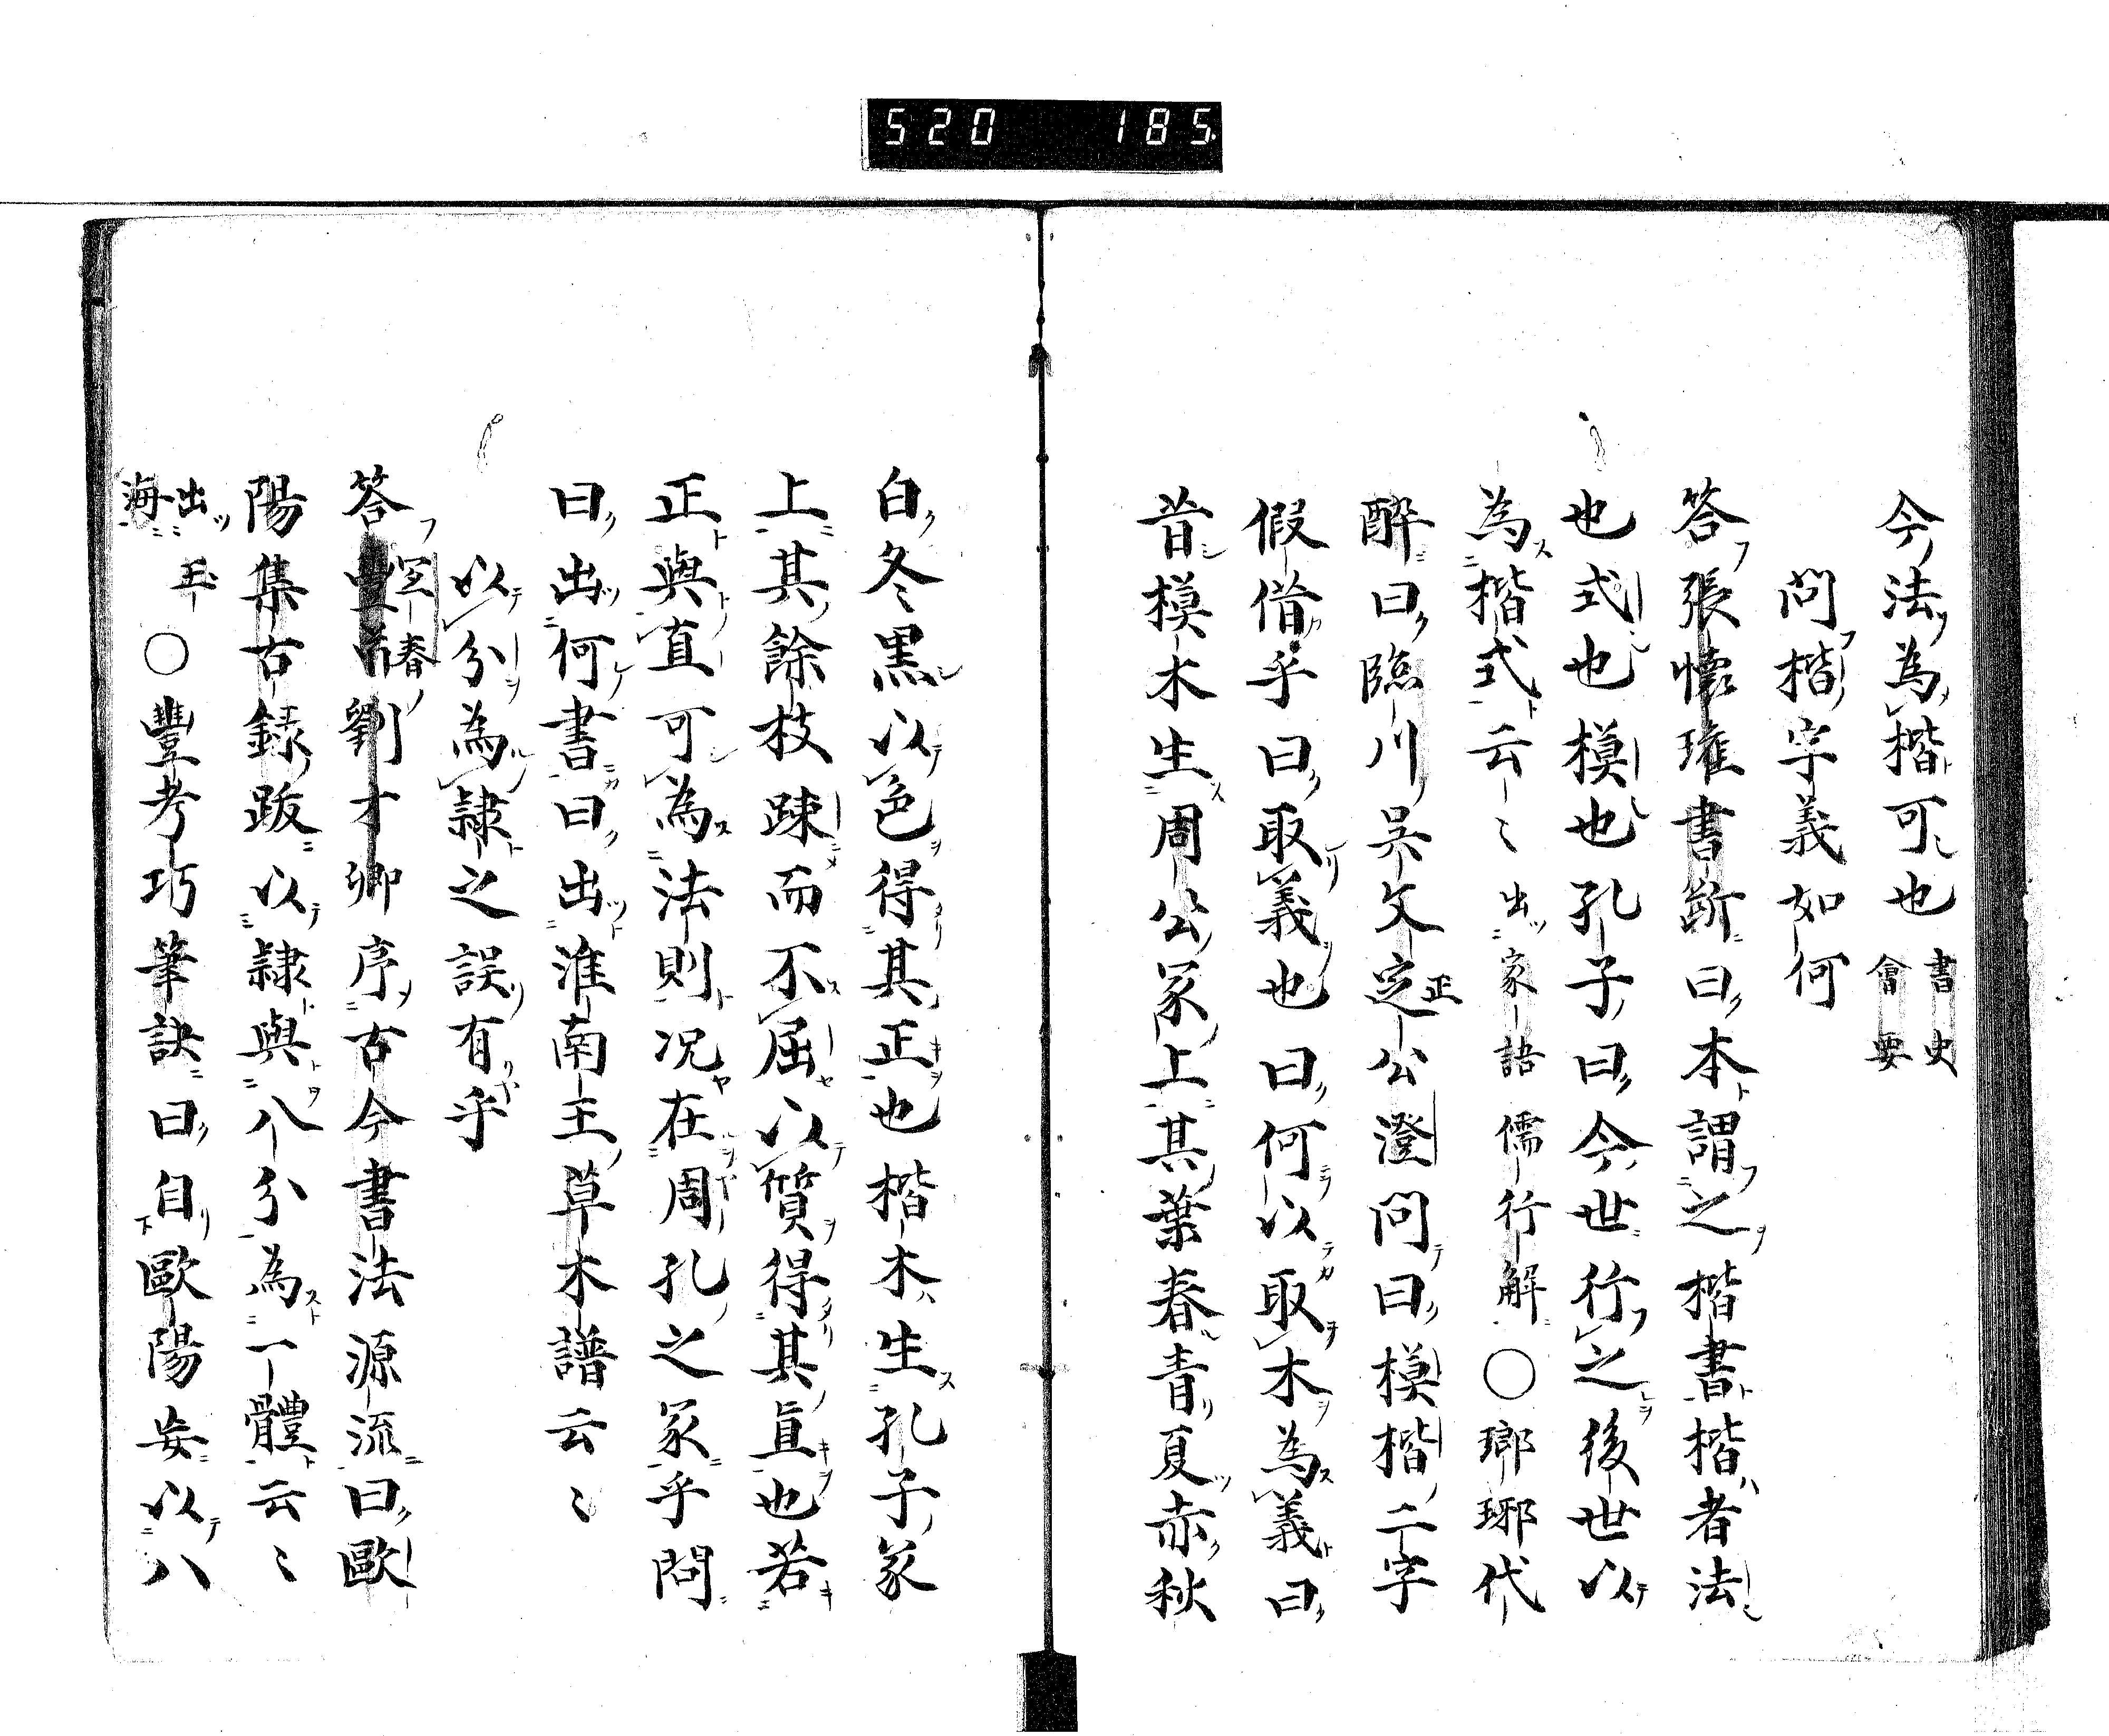 520 185
今法為楷可也 書史會要
問楷字義如何
答張懷瓘書斷曰本謂之楷書楷者法
也式也模也孔子曰今世行之後世以
為楷式云〻出家語儒行解○瑯琊代
醉曰臨川吳文定正公澄問曰模楷二字
假借乎曰取義也曰何以取木為義曰
昔模木生周公冢上其葉春青夏赤秋
白冬黒以色得其正也楷木生孔子冢
上其餘枝疎而不屈以質得其直也若
正與直可為法則况在周孔之冢乎問
曰出何書曰出淮南王草木譜云〻
以分為隷之誤有乎
答 劉才卿序古今書法源流曰歐
陽集古録跋以隷與八分為一體云〻
出玉海○豐考巧筆訣曰自歐陽妄以八